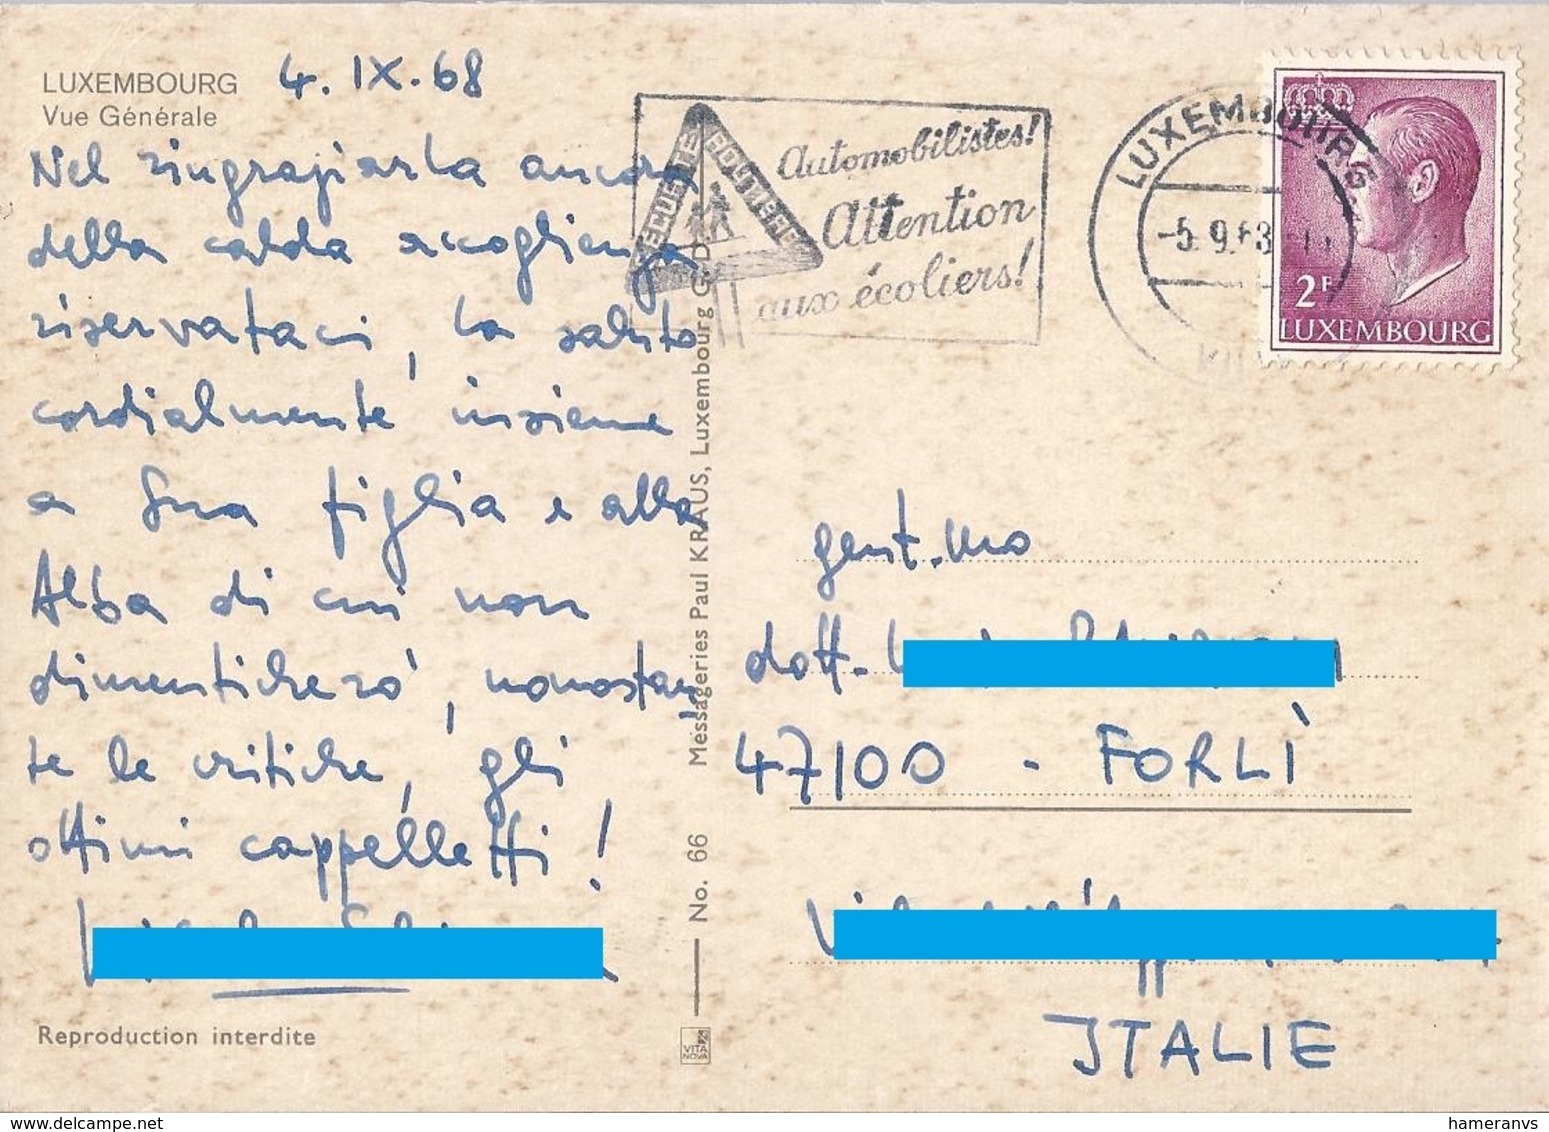 LUXEMBOURG
Vue Générale
4. IX. 68
Nel ringraziarla ancora
della calda accoglienza
riservataci, la saluto
cordialmente insieme
a Sua figlia e alla
Alba di cui non
dimenticherò, nonostan
te le critiche, gli
ottimi cappelletti!
Reproduction interdite
No. 66 Messageries Paul KRAUS, Luxembourg G.D.
VITA
NOVA
SECURITE ROUTIERE
Automobilistes!
Attention
aux écoliers!
LUXEMBOURG
-5.-9.68
2F
LUXEMBOURG
gent.mo
dott.
47100 - FORLÌ
ITALIE
hameranvs
www.delcampe.net